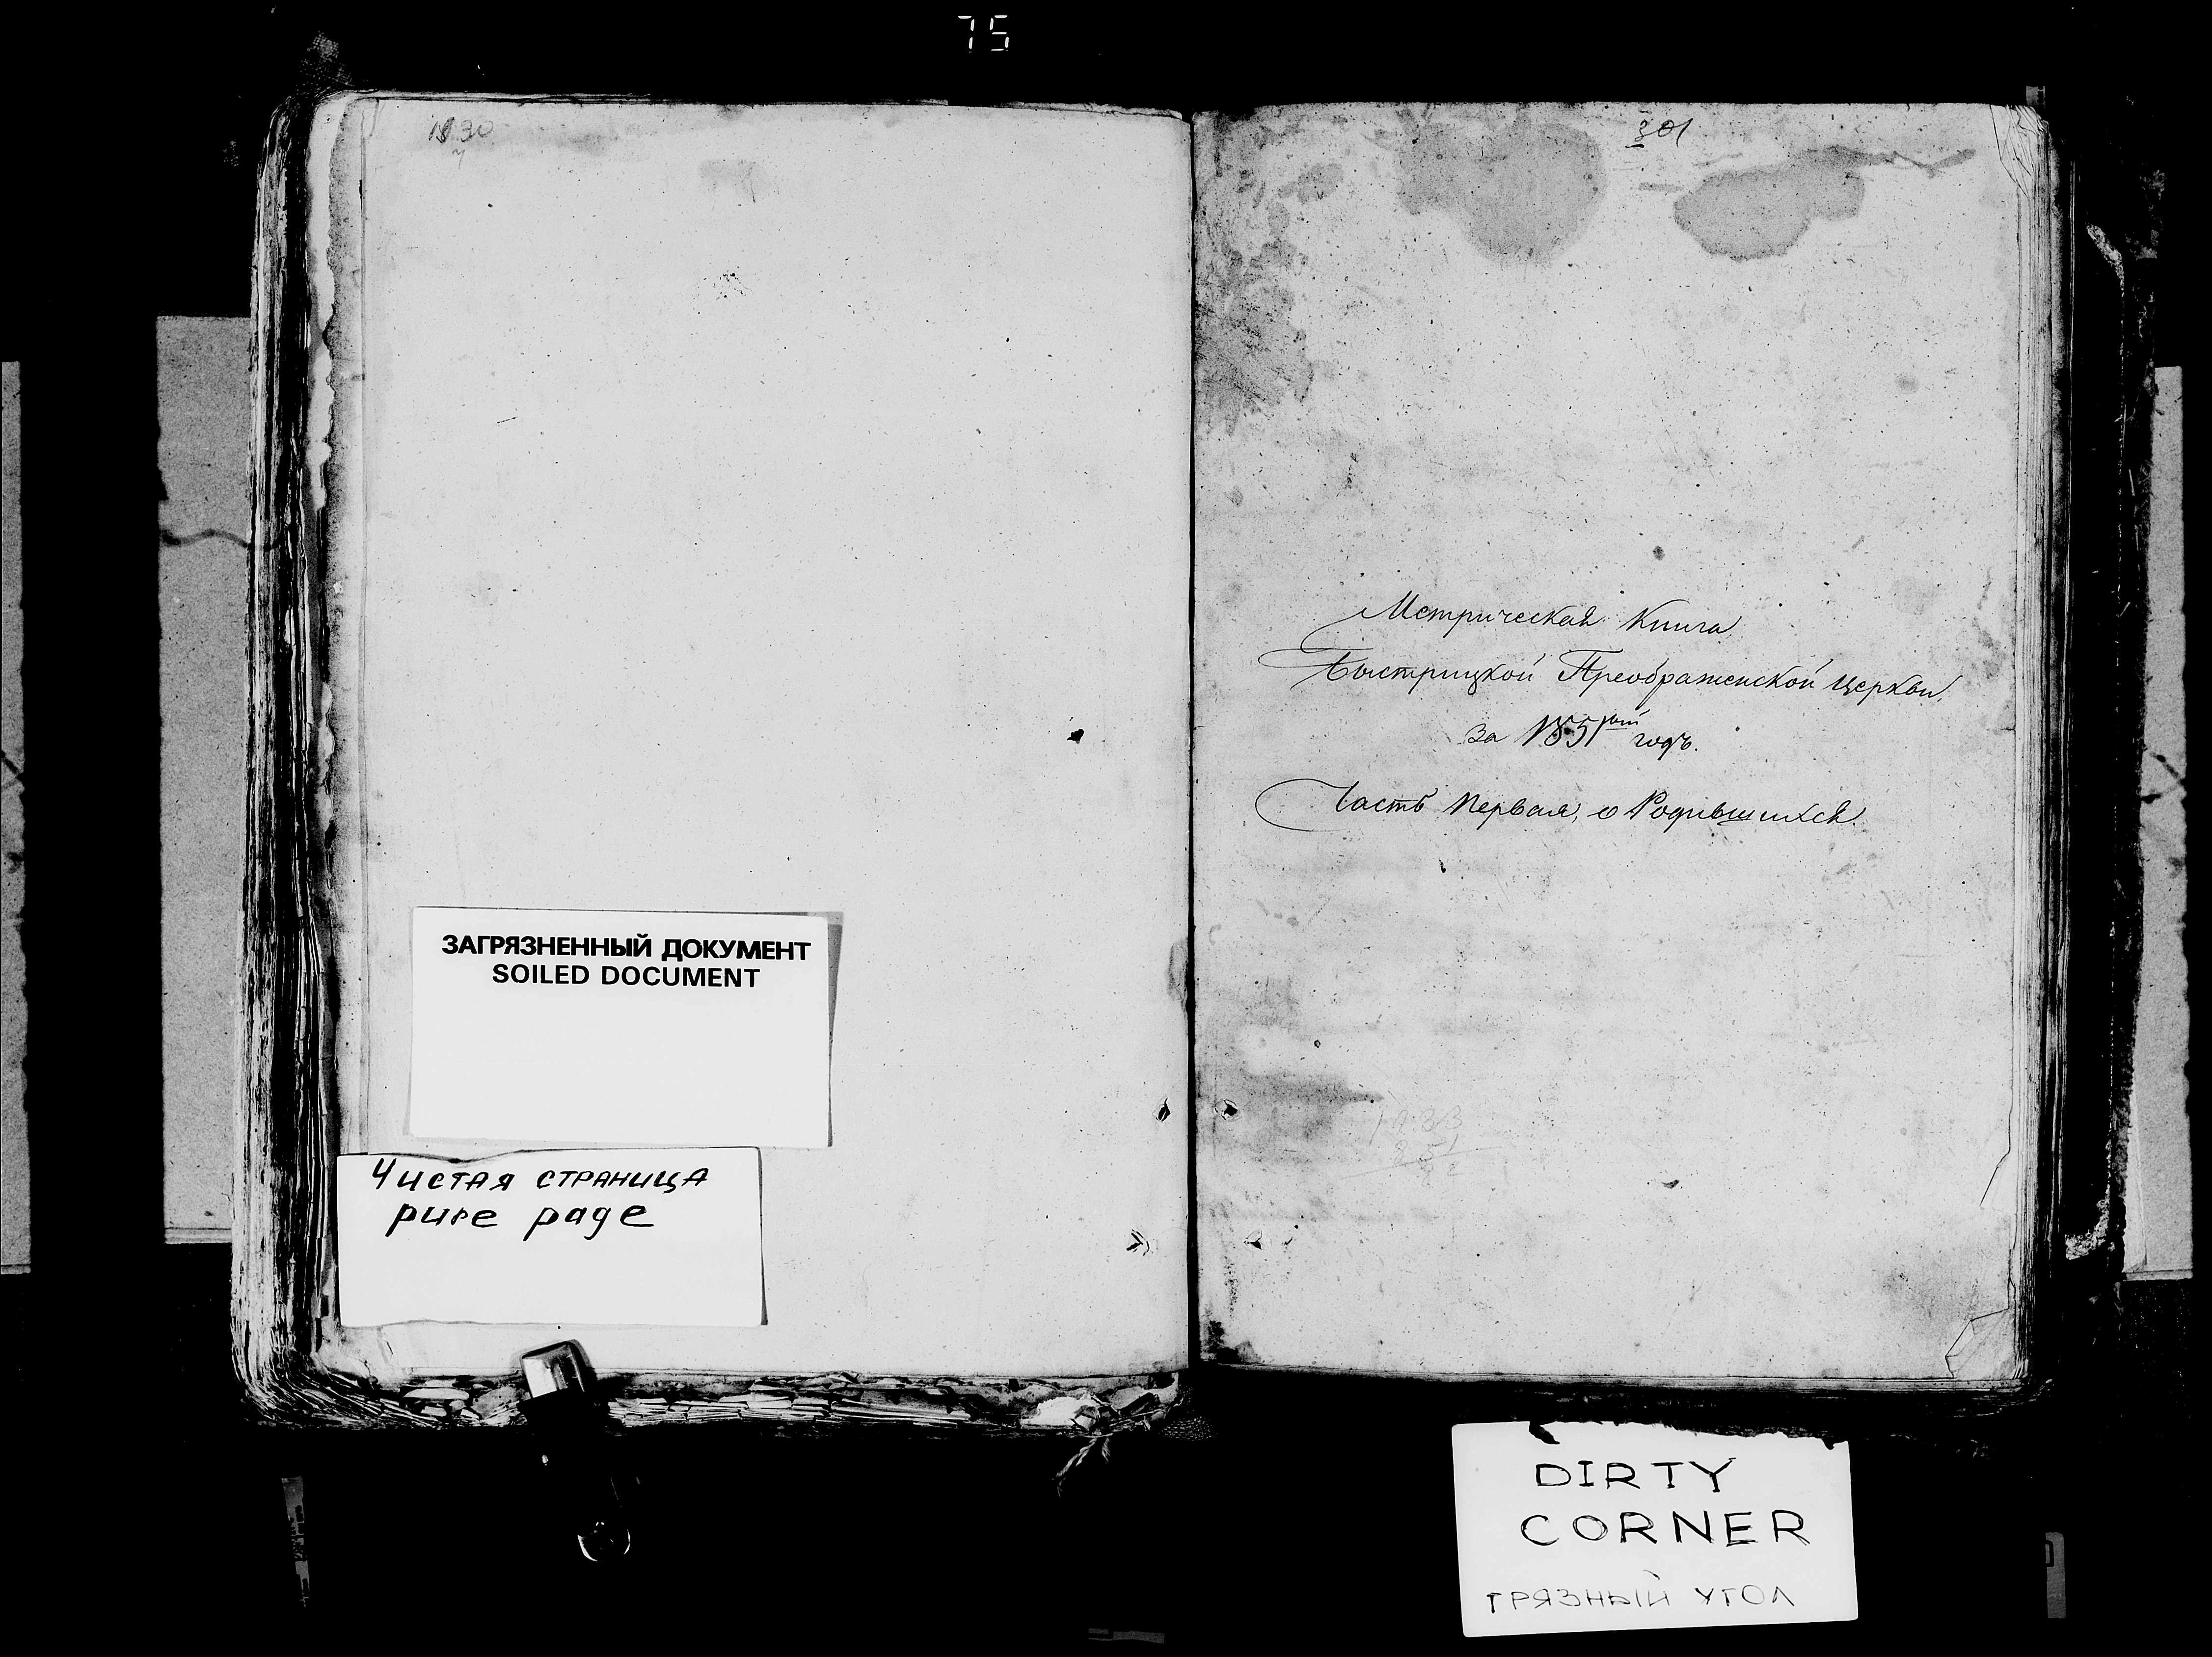 75
1830
301
Метрическая Книга
Быстрицкой Преображенской Церкви,
за 1851ый годъ.
Часть Первая, о Родившихся.
ЗАГРЯЗНЕННЫЙ ДОКУМЕНТ
SOILED DOCUMENT
Чистая страница
pure page
DIRTY
CORNER
ГРЯЗНЫЙ УГОЛ